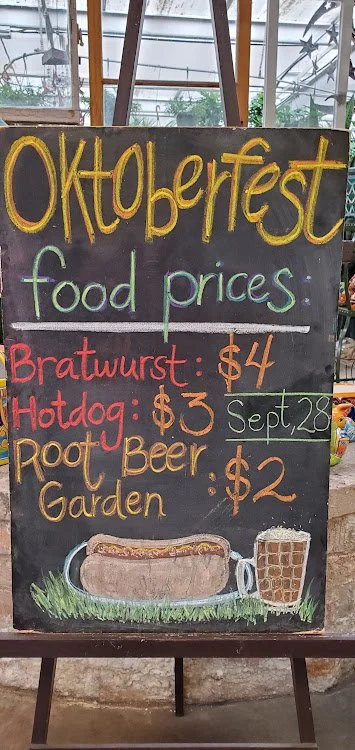 Oktoberfest
food prices:
Bratwurst: $4
Hotdog: $3 Sept, 28
Root Beer
Garden : $2